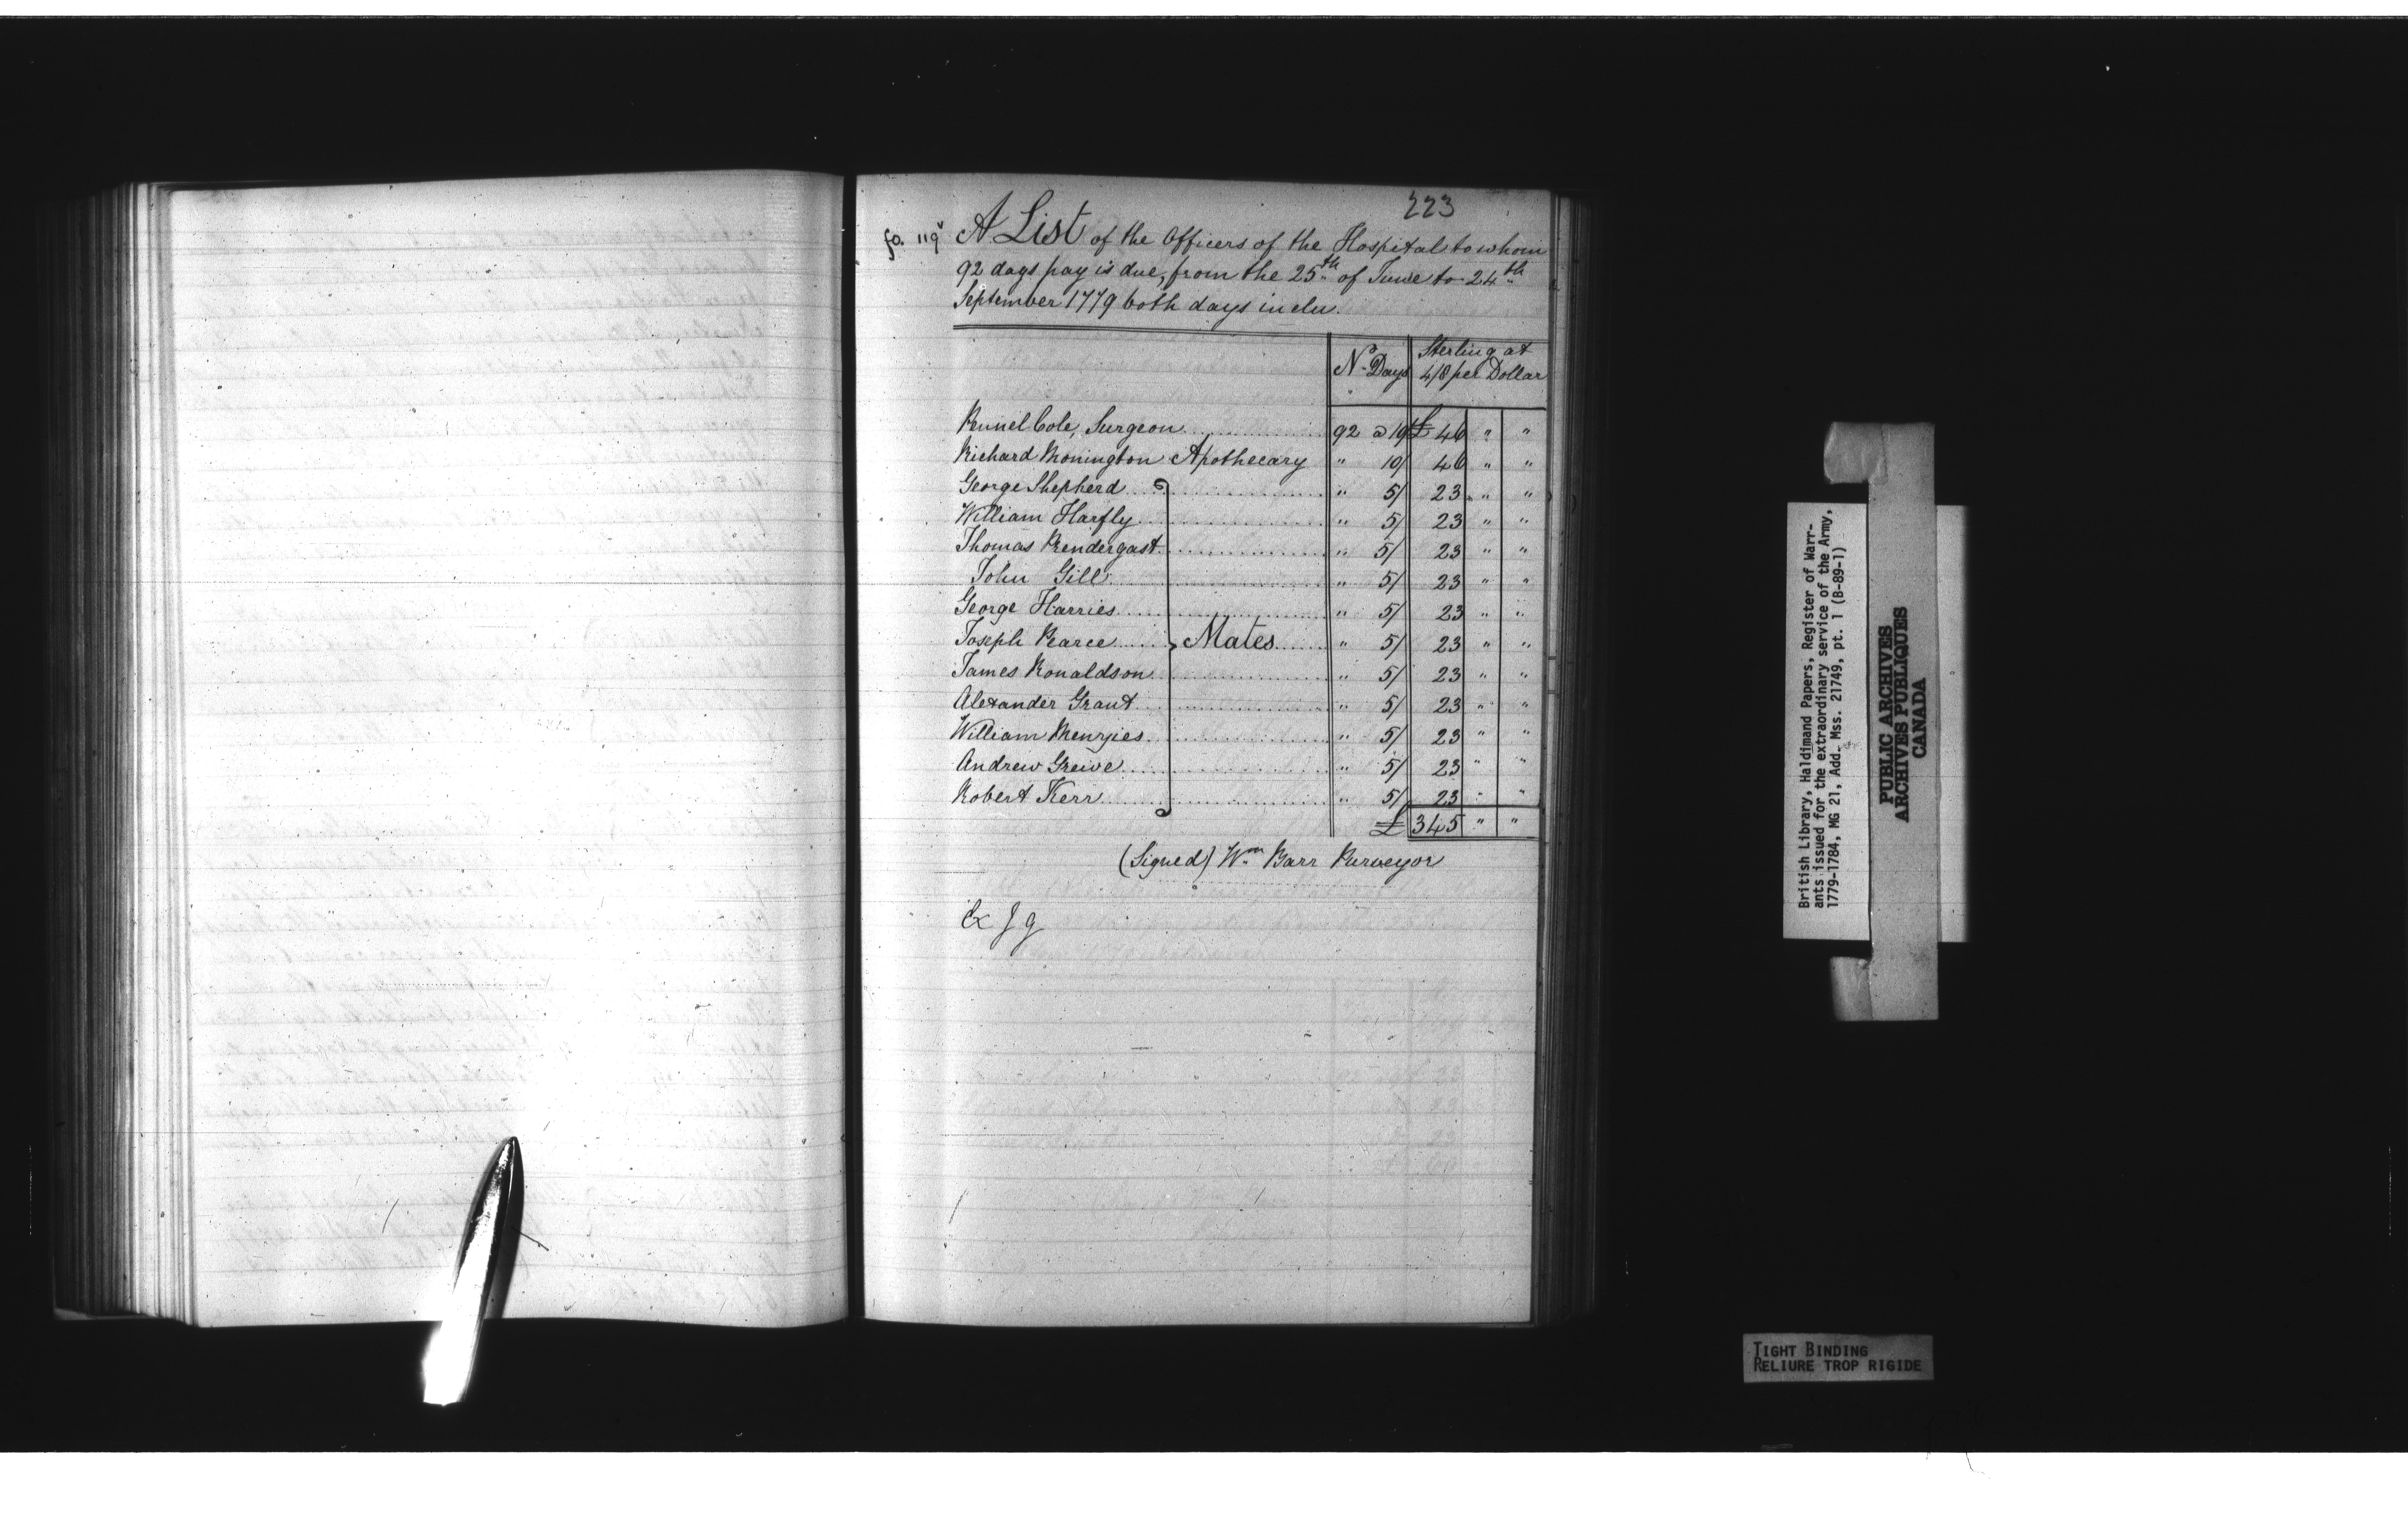 223
fo. 119v A List of the Officers of the Hospital to whom
92 days pay is due, from the 25th of June to 24th
September 1779 both days inclu.
No Days Sterling at
4/8 per Dollar
Cole, Surgeon 92 @ 10/ £ 46 " "
Richard Monington Apothecary " 10/ 46 " "
George Shepherd " 5/ 23 " "
William Harfly " 5/ 23 " "
Thomas Prendergast " 5/ 23 " "
John Gill " 5/ 23 " "
George Harries " 5/ 23 " "
Joseph Pearce Mates " 5/ 23 " "
James Ronaldson " 5/ 23 " "
Alexander Grant " 5/ 23 " "
William Menzies " 5/ 23 " "
Andrew Greive " 5/ 23 " "
Robert Kerr " 5/ 23 " "
£ 345 " "
(Signed) Wm Barr Purveyor
Ex J g
British Library, Haldimand Papers, Register of Warr-
ants issued for the extraordinary service of the Army,
1779-1784, MG 21, Add. Mss. 21749, pt. 1 (B-89-1)
PUBLIC ARCHIVES
ARCHIVES PUBLIQUES
CANADA
TIGHT BINDING
RELIURE TROP RIGIDE